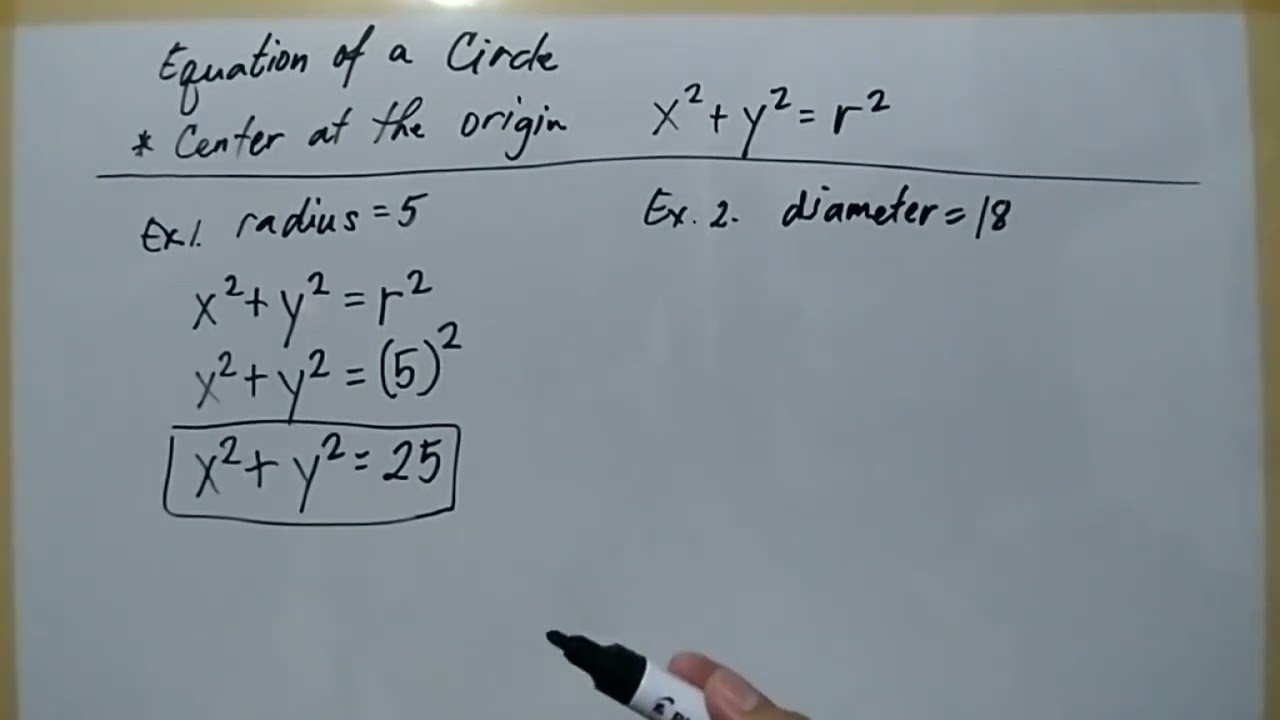 Equation of a Circle
* Center at the origin x²+y²=r²
Ex1. radius=5
x²+y²=r²
x²+y²=(5)²
x²+y²=25
Ex. 2. diameter=18